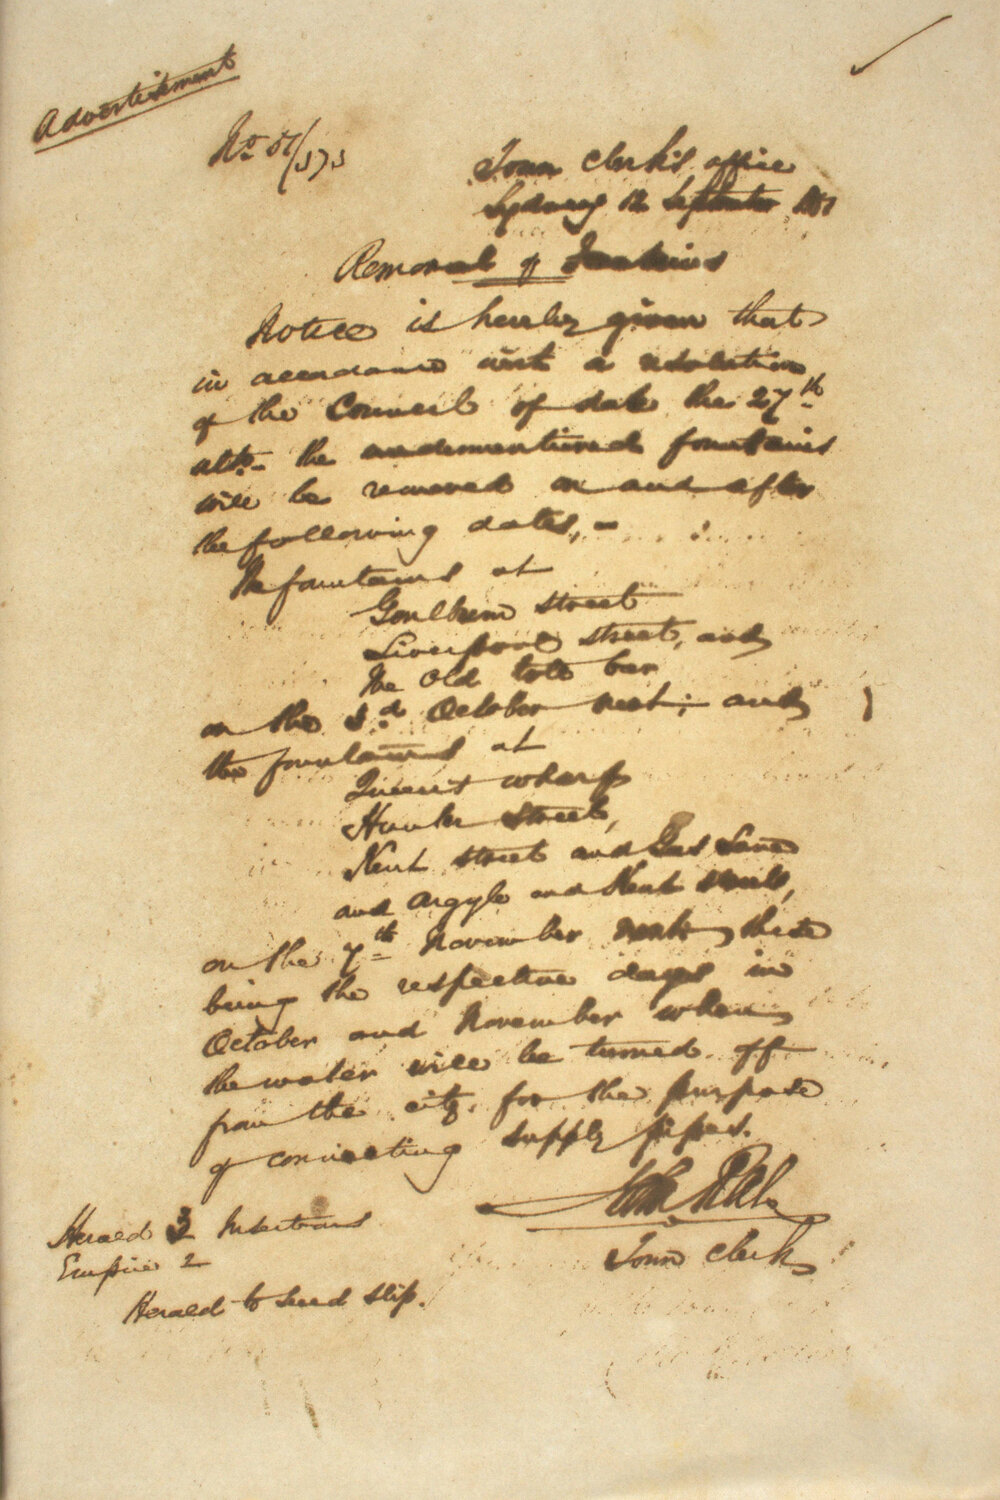 Advertisement
No. 57/
Town Clerk's office
Sydney 12 September 1857
Removal of Fountains
Notice is hereby given that
in accordance with a resolution
of the Council of date the 27th
ulto. the undermentioned fountains
will be removed on and after
the following dates, –
The fountains at
Goulburn street
Liverpool street, and
The Old Toll bar
on the 3d October next; and
the fountains at
Queen's wharf
Hunter Street,
Kent street and Gas Lane
and Argyle and Kent streets,
on the 7th November next, these
being the respective days in
October and November when
the water will be turned off
from the city, for the purpose
of connecting supply pipes.
John
Town Clerk
Herald 3 Insertions
Empire 2
Herald to send slip.